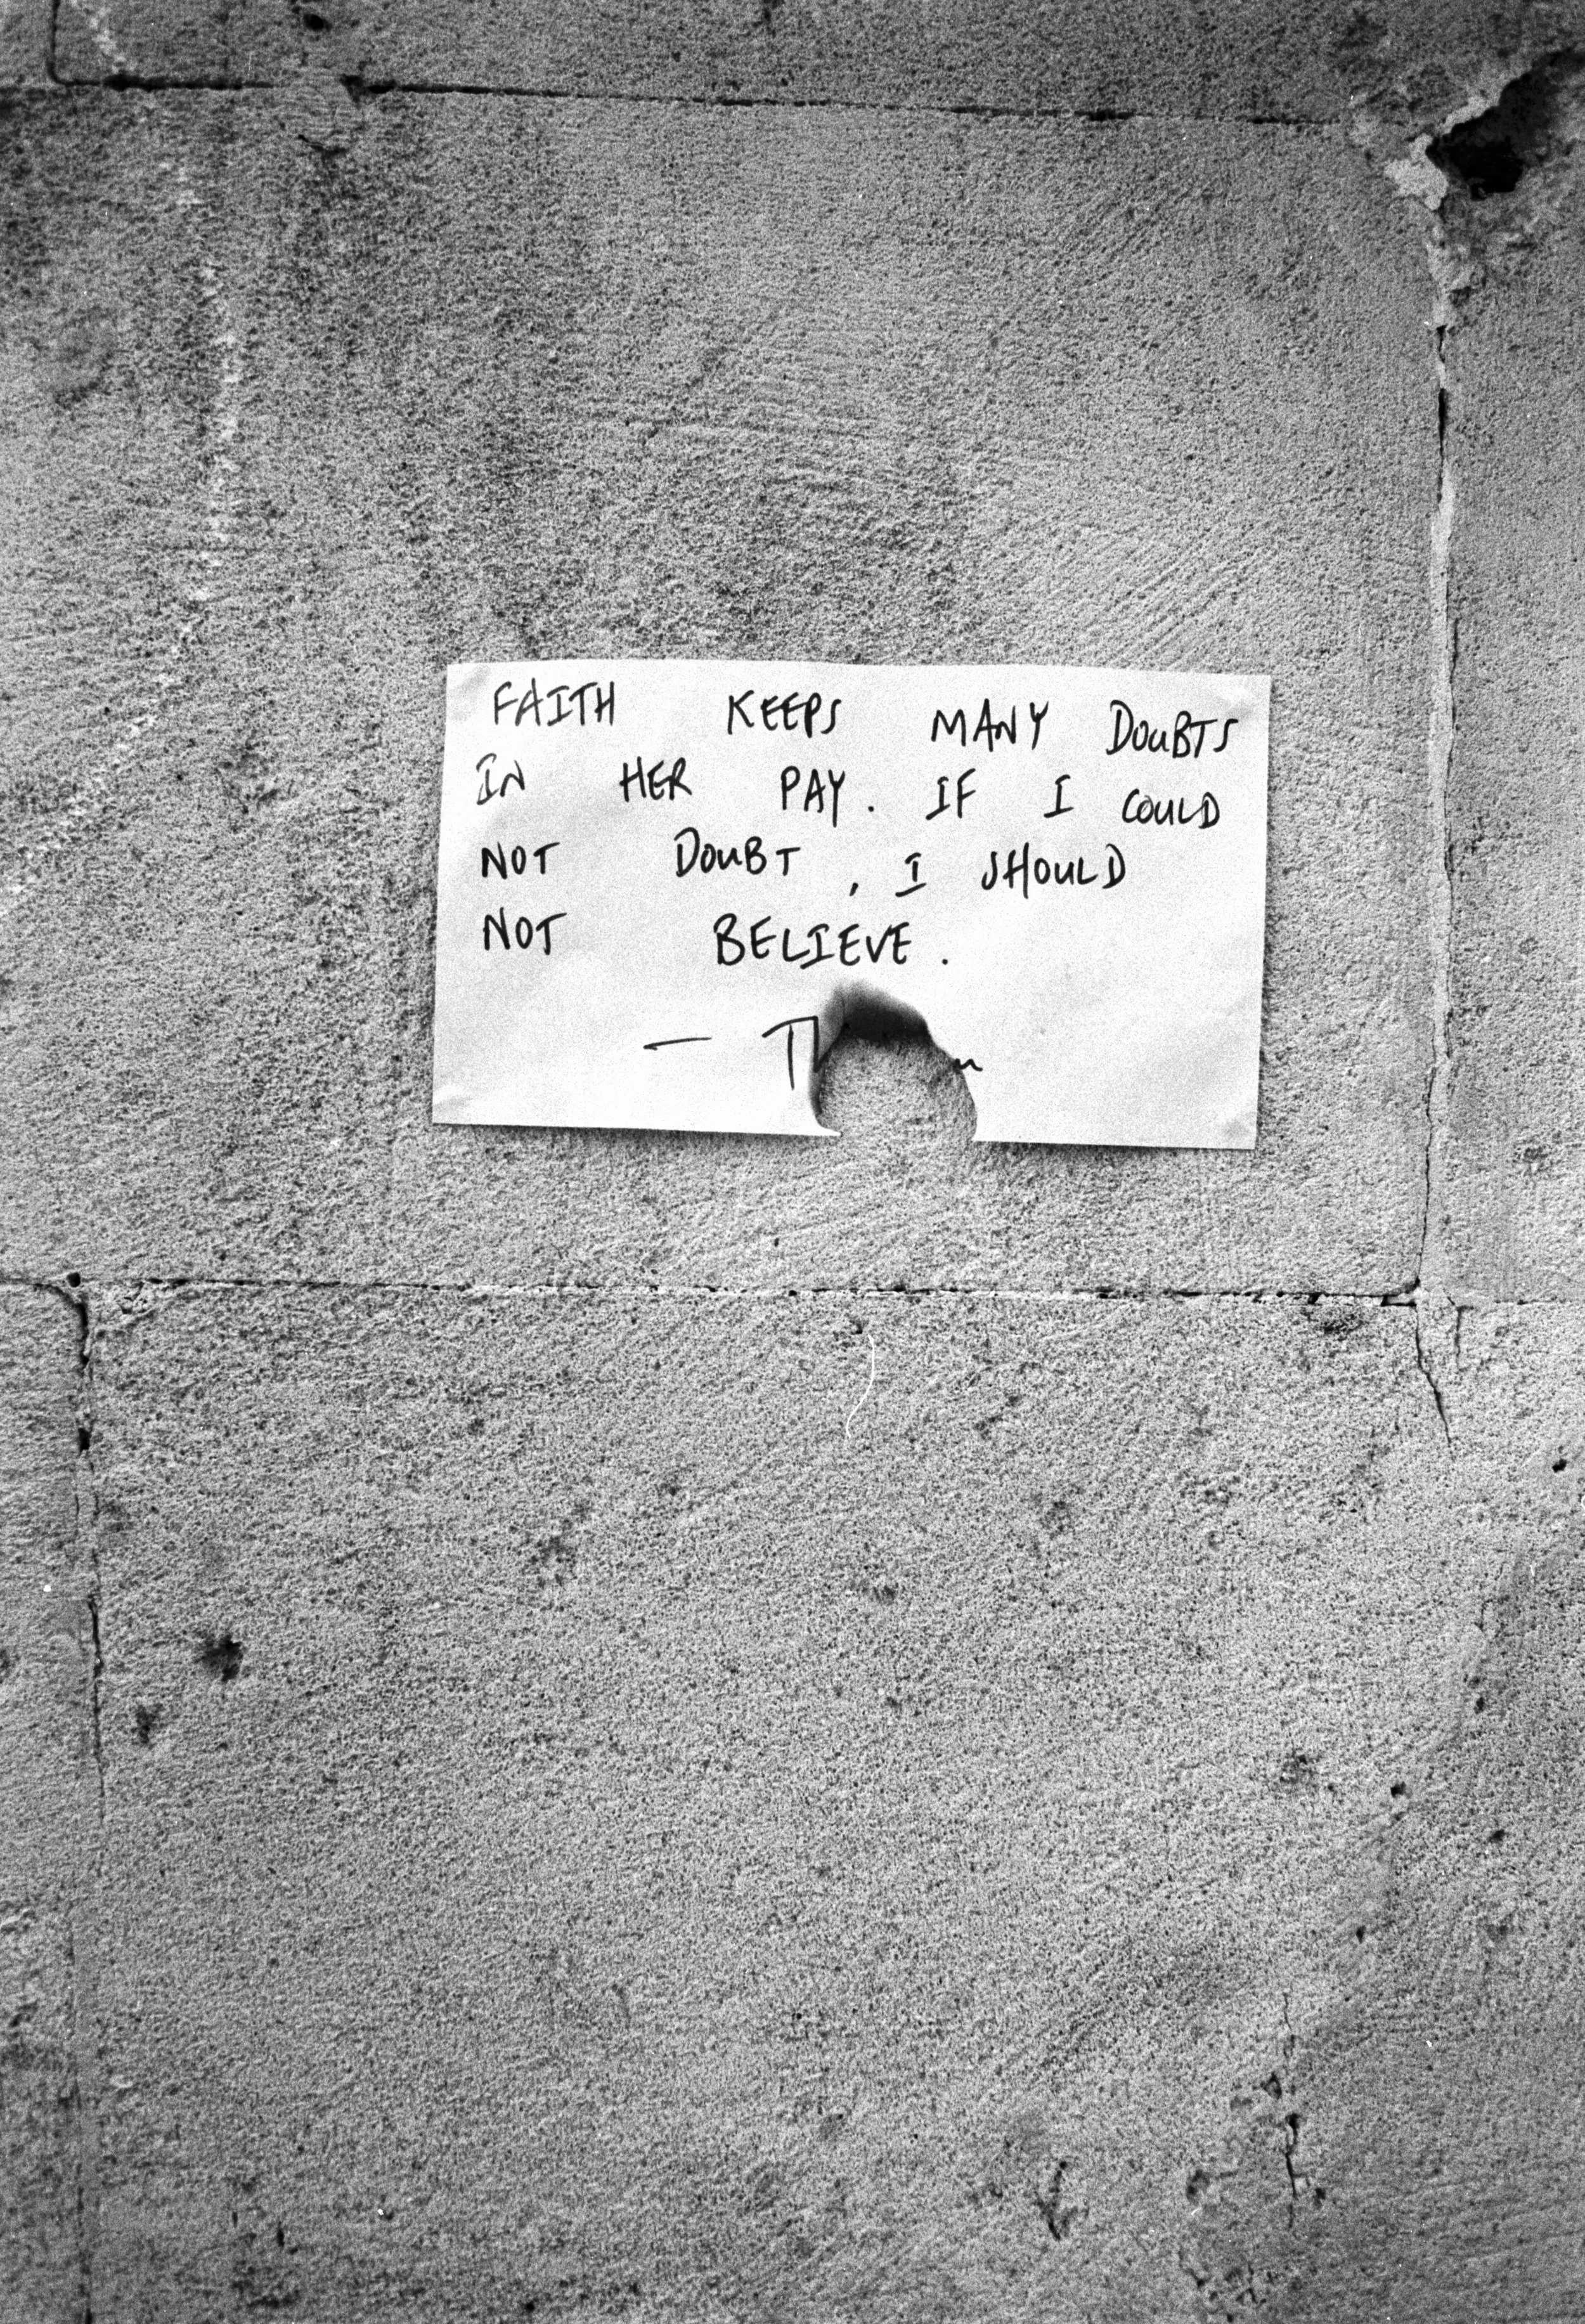 FAITH KEEPS MANY DOUBTS
IN HER PAY. IF I COULD
NOT DOUBT, I SHOULD
NOT BELIEVE.